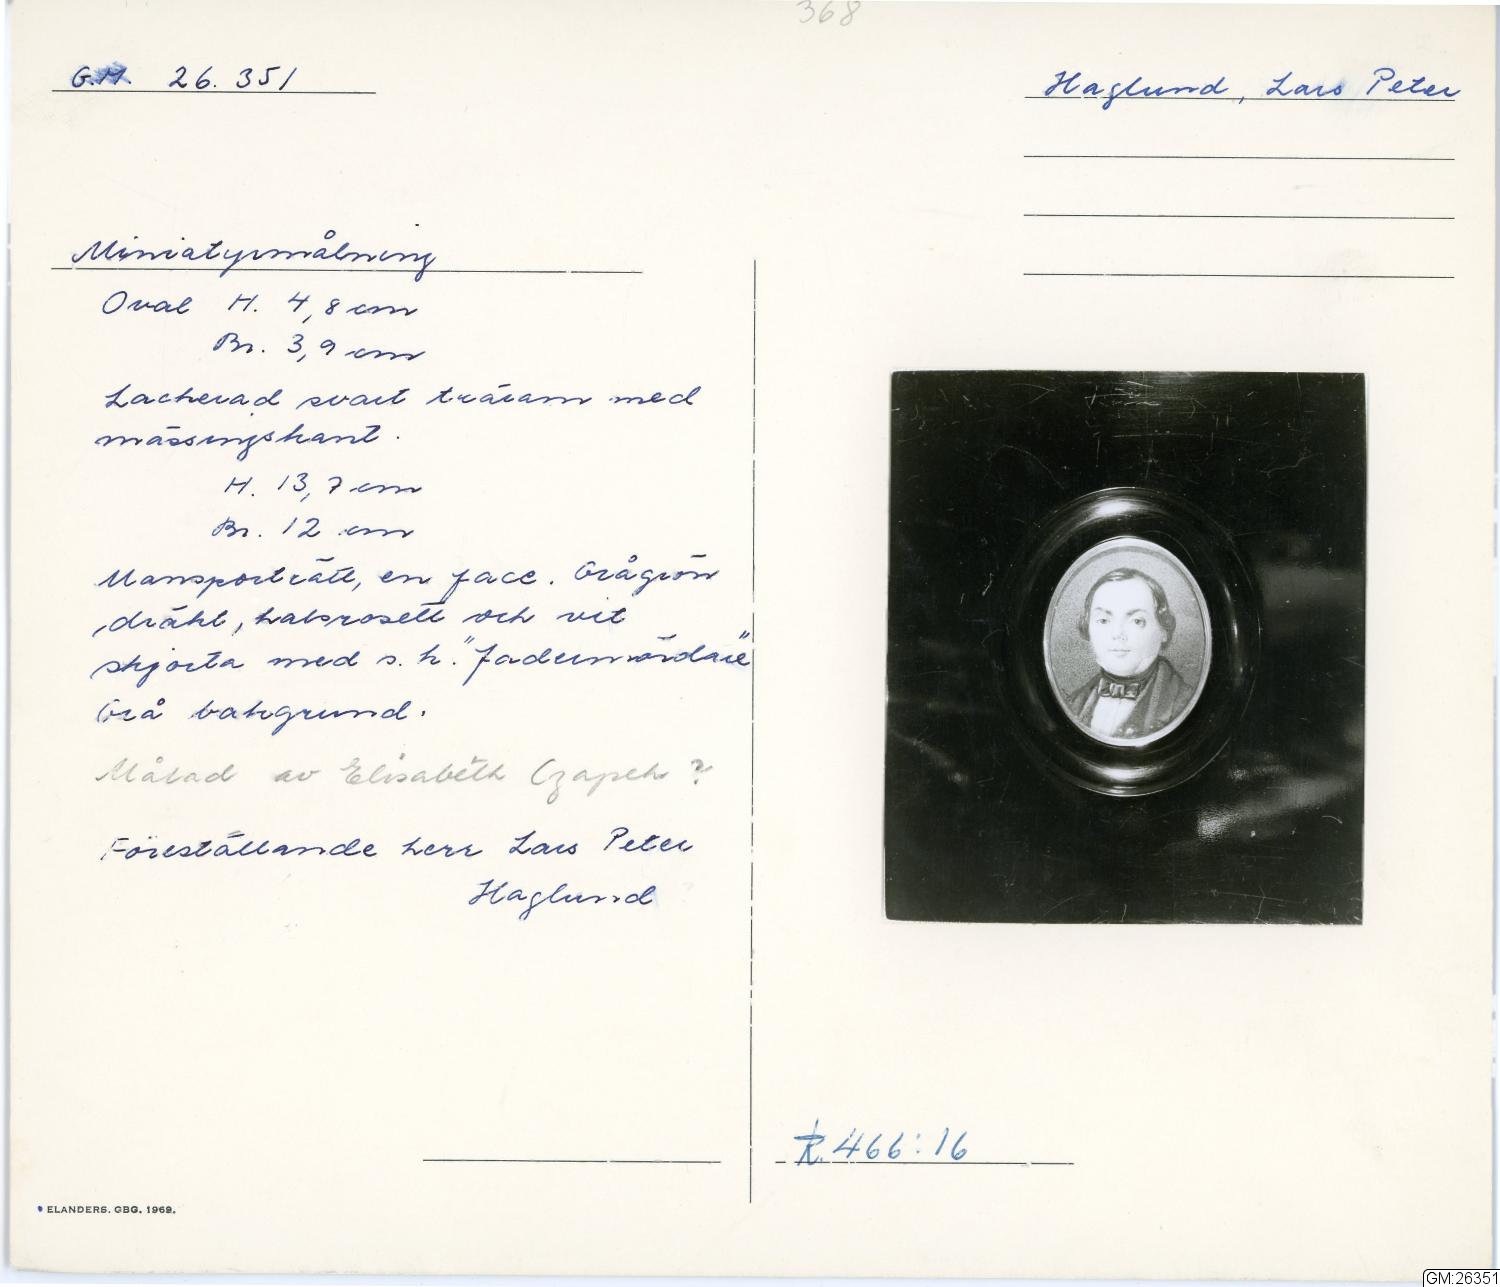 368
G.M. 26.351
Haglund, Lars Peter
Miniatyrmålning
Oval H. 4,8 cm
Br. 3,9 cm
Lackerad svart träram med
mässingskant.
H. 13,7 cm
Br. 12 cm
Mansporträtt, en face. Grågrön
dräkt, halsrosett och vit
skjorta med s.k. "fadermördare"
Grå bakgrund.
Målad av Elisabeth Czapek?
Föreställande herr Lars Peter
Haglund
R. 466:16
ELANDERS. GBG. 1969.
GM:26351